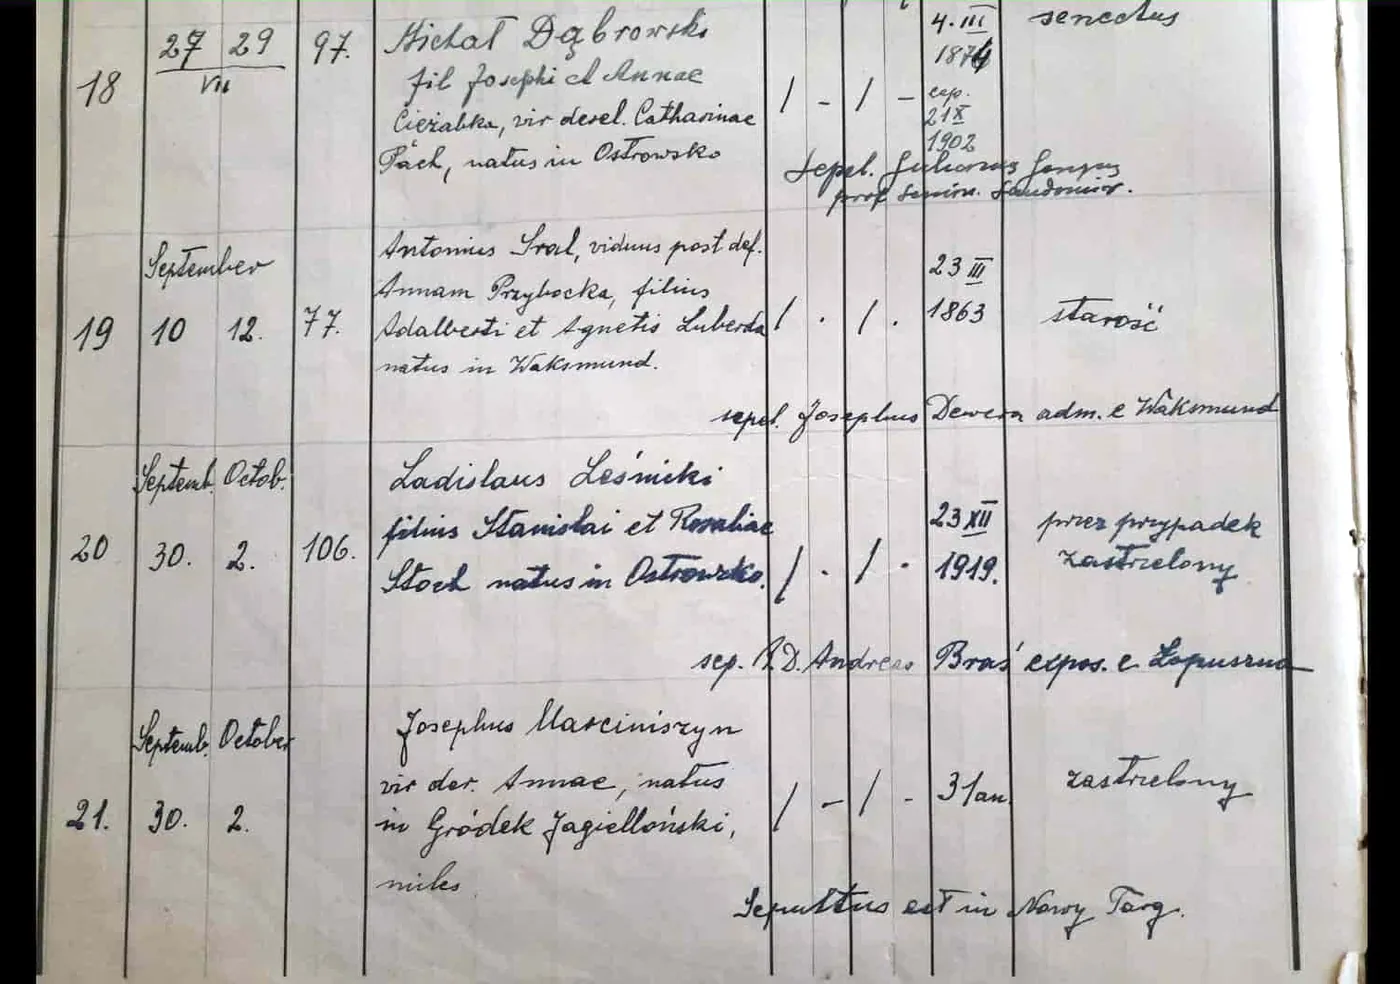 18
27 29
VII
97.
Michał Dąbrowski
fil Josephi et Annae
Ciężabka, vir derel. Catharinae
Pach, natus in Ostrowsko
/ - / -
4. III
1874
cop.
21 X
1902
senectus
Sepel. Julianus
prof Semin. Sandomir.
September
19
10 12.
77.
Antonius Sral, viduus post def.
Annam Przybocka, filius
Adalberti et Agnetis Luberda
natus in Waksmund.
/ . / .
23 III
1863
starość
sepel. Josephus Dewera adm. e Waksmund
Septemb. Octob.
20
30. 2.
106.
Ladislaus Leśnicki
filius Stanislai et Rosaliae
Stoch natus in Ostrowsko.
/ . / .
23 XII
1919.
przez przypadek
zastrzelony
sep. P.D. Andreas Braś expos. e Łopuszna
Septemb. October
21.
30. 2.
Josephus Marciniszyn
vir der. Annae, natus
in Gródek Jagielloński,
miles
/ - / -
31 an.
zastrzelony
Sepultus est in Nowy Targ.